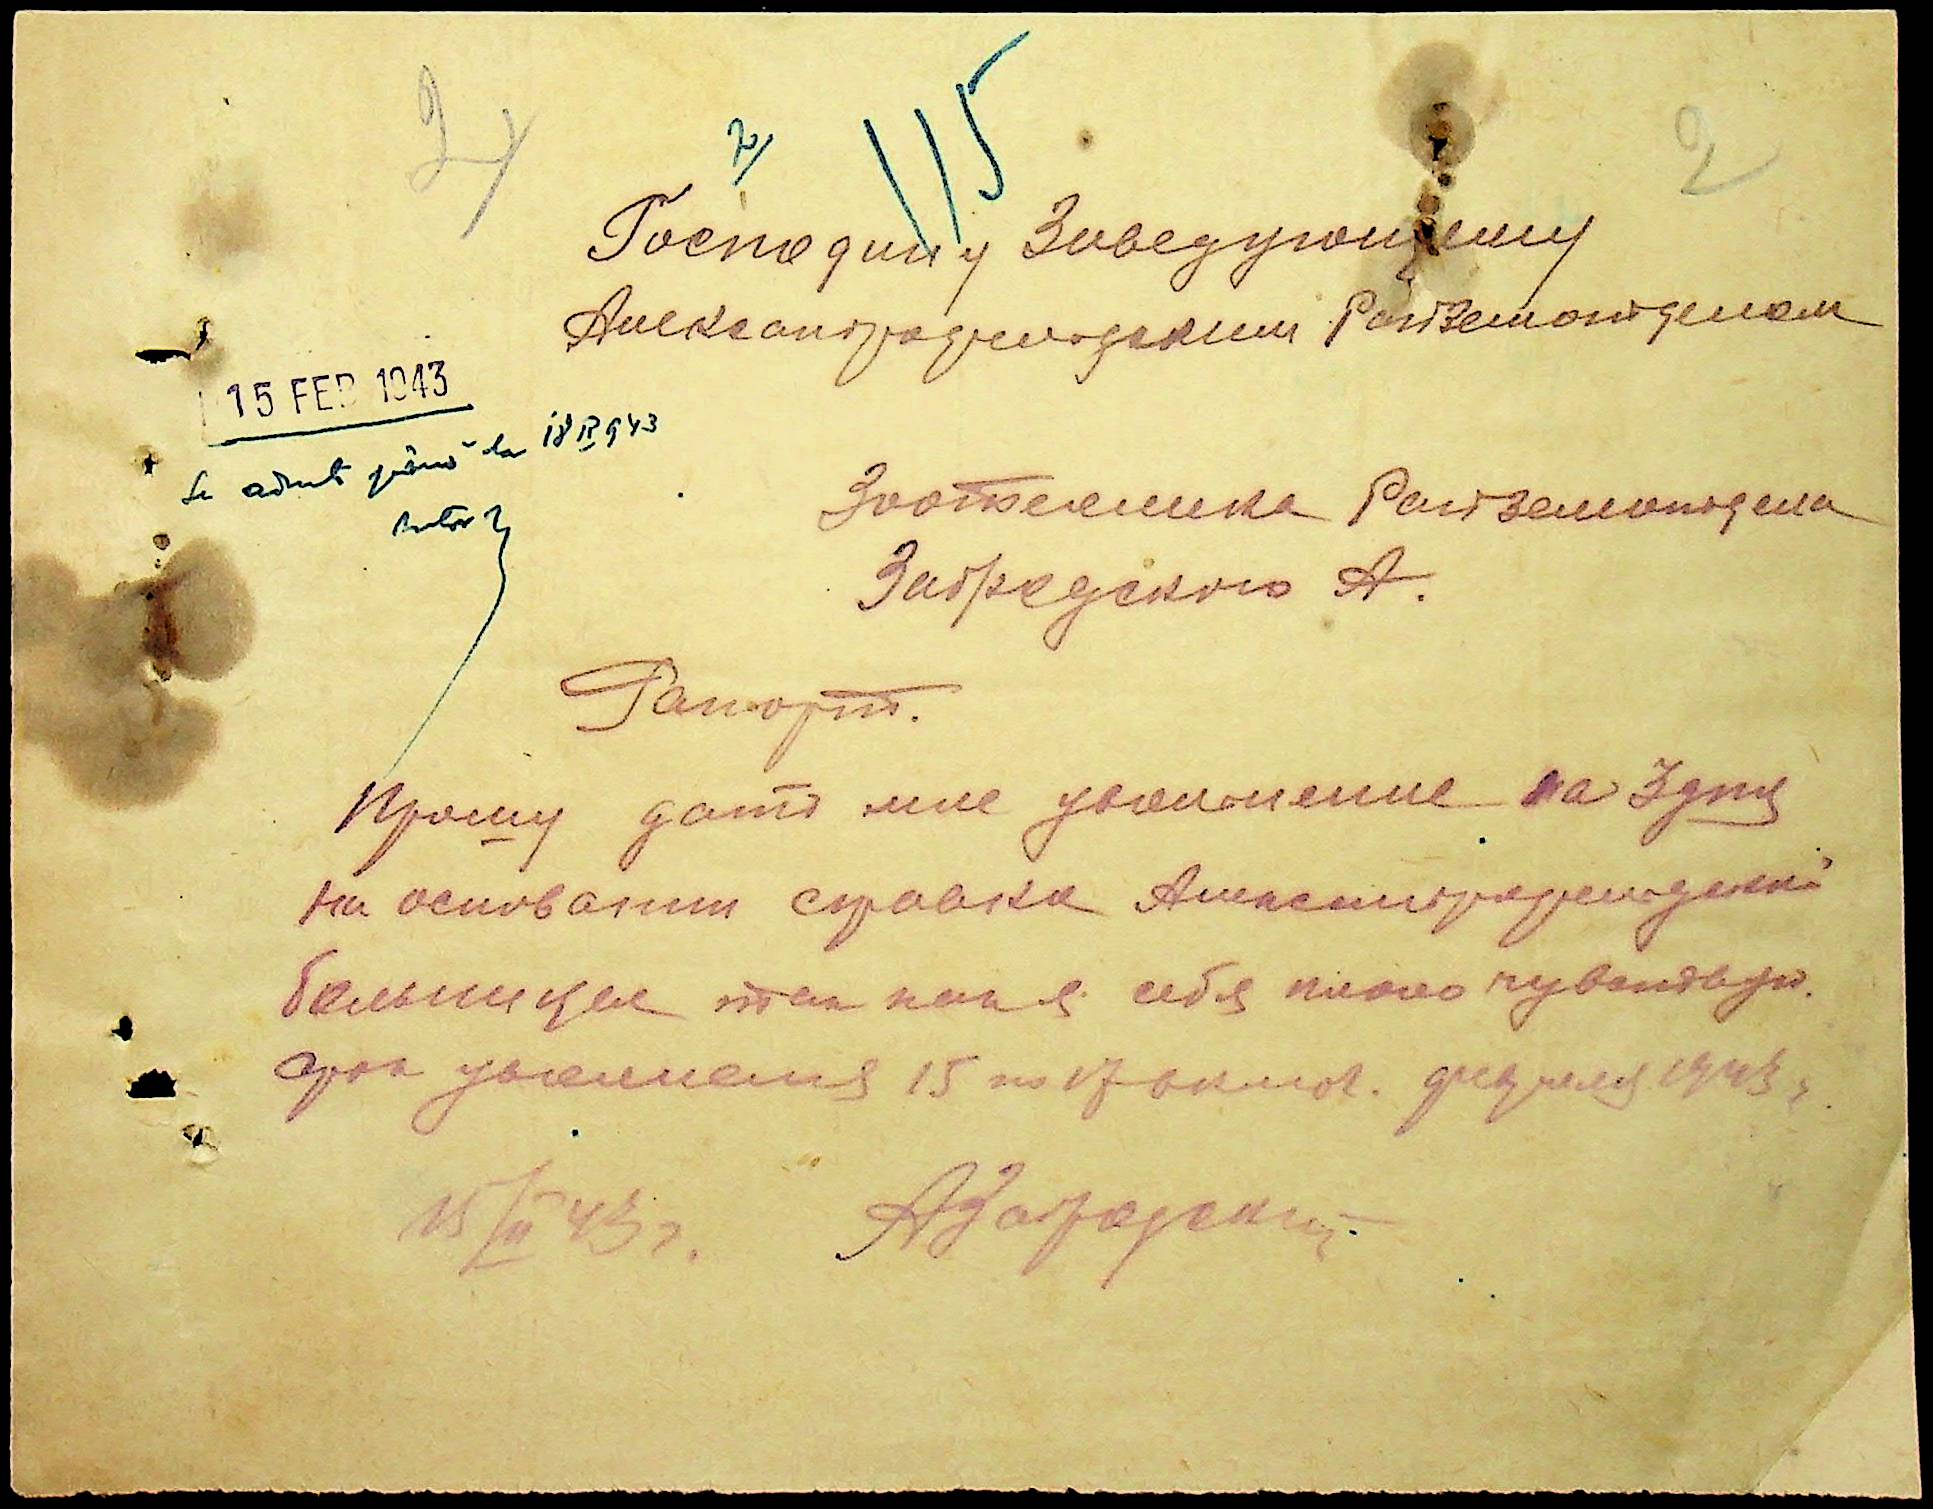 2
115
2
Господину Заведующему
Александрфельдским Райземотделом
15 FEB 1943
Se admite până la 18 II 943
Зоотехника Райземотдела
Загродского А.
Рапорт.
Прошу дать мне увольнение на 3 дня
на основании справки Александрфельдской
больницы так как я себя плохо чувствую.
Срок увольнения 15 по 17 включ. февраля 1943 г.
15/II 43 г. АЗагродский